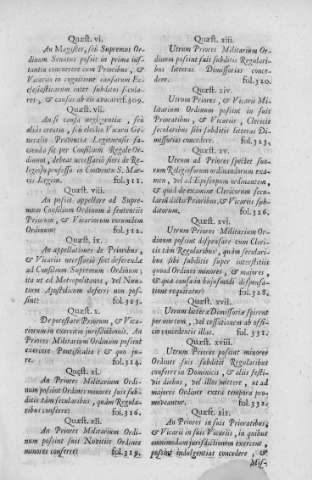 Quæst. vi.
An Magister, seù Supremus Or-
dinum Senatus possit in prima ins-
tantia concurrere cum Prioribus, &
Vicariis in cognitione causarum Ec-
clesiasticarum inter subditos sæcula-
res, & causas ab eis avocare? 309.
Quæst. vii.
An si causa negligentiæ, seù
alias creatio, seù electio Vicarii Ge-
neralis Provincia Legionensis fa-
cienda sit per Consilium Regale Or-
dinum, debeat necessariò fieri de Re-
ligioso professo in Conventu S. Mar-
ci Legion. fol. 311.
Quæst. viii.
An possit appellare ad Supre-
mum Consilium Ordinum à sententiis
Priorum, & Vicariorum eorumdem
Ordinum? fol. 312.
Quæst. ix.
An appellationes de Prioribus,
& Vicariis necessariò sint deferendæ
ad Consilium Supremum Ordinum,
ita ut ad Metropolitanos, vel Nun-
cium Apostolicum deferri non pos-
sint? fol. 313.
Quæst. x.
De potestate Priorum, & Vica-
riorum in exercitio jurisdictionis. An
Priores Militarium Ordinum possint
exercere Pontificalia? & quo ju-
re. fol. 314.
Quæst. xi.
An Priores Militarium Ordi-
num possint Ordines minores suis sub-
ditis tàm sæcularibus, quàm Regula-
ribus conferre? fol. 316.
Quæst. xii.
An Priores Militarium Ordi-
num possint suis Novitiis Ordines
minores conferre? fol. 319.
Quæst. xiii.
Utrum Priores Militarium Or-
dinum possint suis subditis Regulari-
bus litteras Dimissorias conce-
dere. fol. 320.
Quæst. xiv.
Utrum Priores, & Vicarii Mi-
litarium Ordinum possint in suis
Prioratibus, & Vicariis, Clericis
sæcularibus sibi subditis litteras Di-
missorias concedere. fol. 323.
Quæst. xv.
Utrum ad Priores spectet suo-
rum Religiosorum ordinandorum exa-
men, vel ad Episcopum ordinantem,
& quid de examine Clericorum sæcu-
larium dictis Prioribus, & Vicariis sub-
ditorum. fol. 326.
Quæst. xvi.
Utrum Priores Militarium Or-
dinum possint dispensare cum Cleri-
cis tàm Regularibus, quàm sæculari-
bus sibi subditis super interstitiis
quoad Ordines minores, & majores,
& quæ causa in hujusmodi dispensa-
tione requiratur? fol. 328.
Quæst. xvii.
Utrum litteræ Dimissoriæ spirent
per mortem, vel cessationem ab offi-
cio concedentis illas. fol. 331.
Quæst. xviii.
Utrum Priores possint minores
Ordines suis subditis Regularibus
conferre in Dominicis, & aliis festi-
vis diebus, vel illos mittere, ut ad
majores Ordines extra tempora pro-
moveantur. fol. 332.
Quæst. xix.
An Priores in suis Prioratibus,
& Vicarii in suis Vicariis, in quibus
omnimodam jurisdictionem exercent,
possint indulgentias concedere, &
Mis-